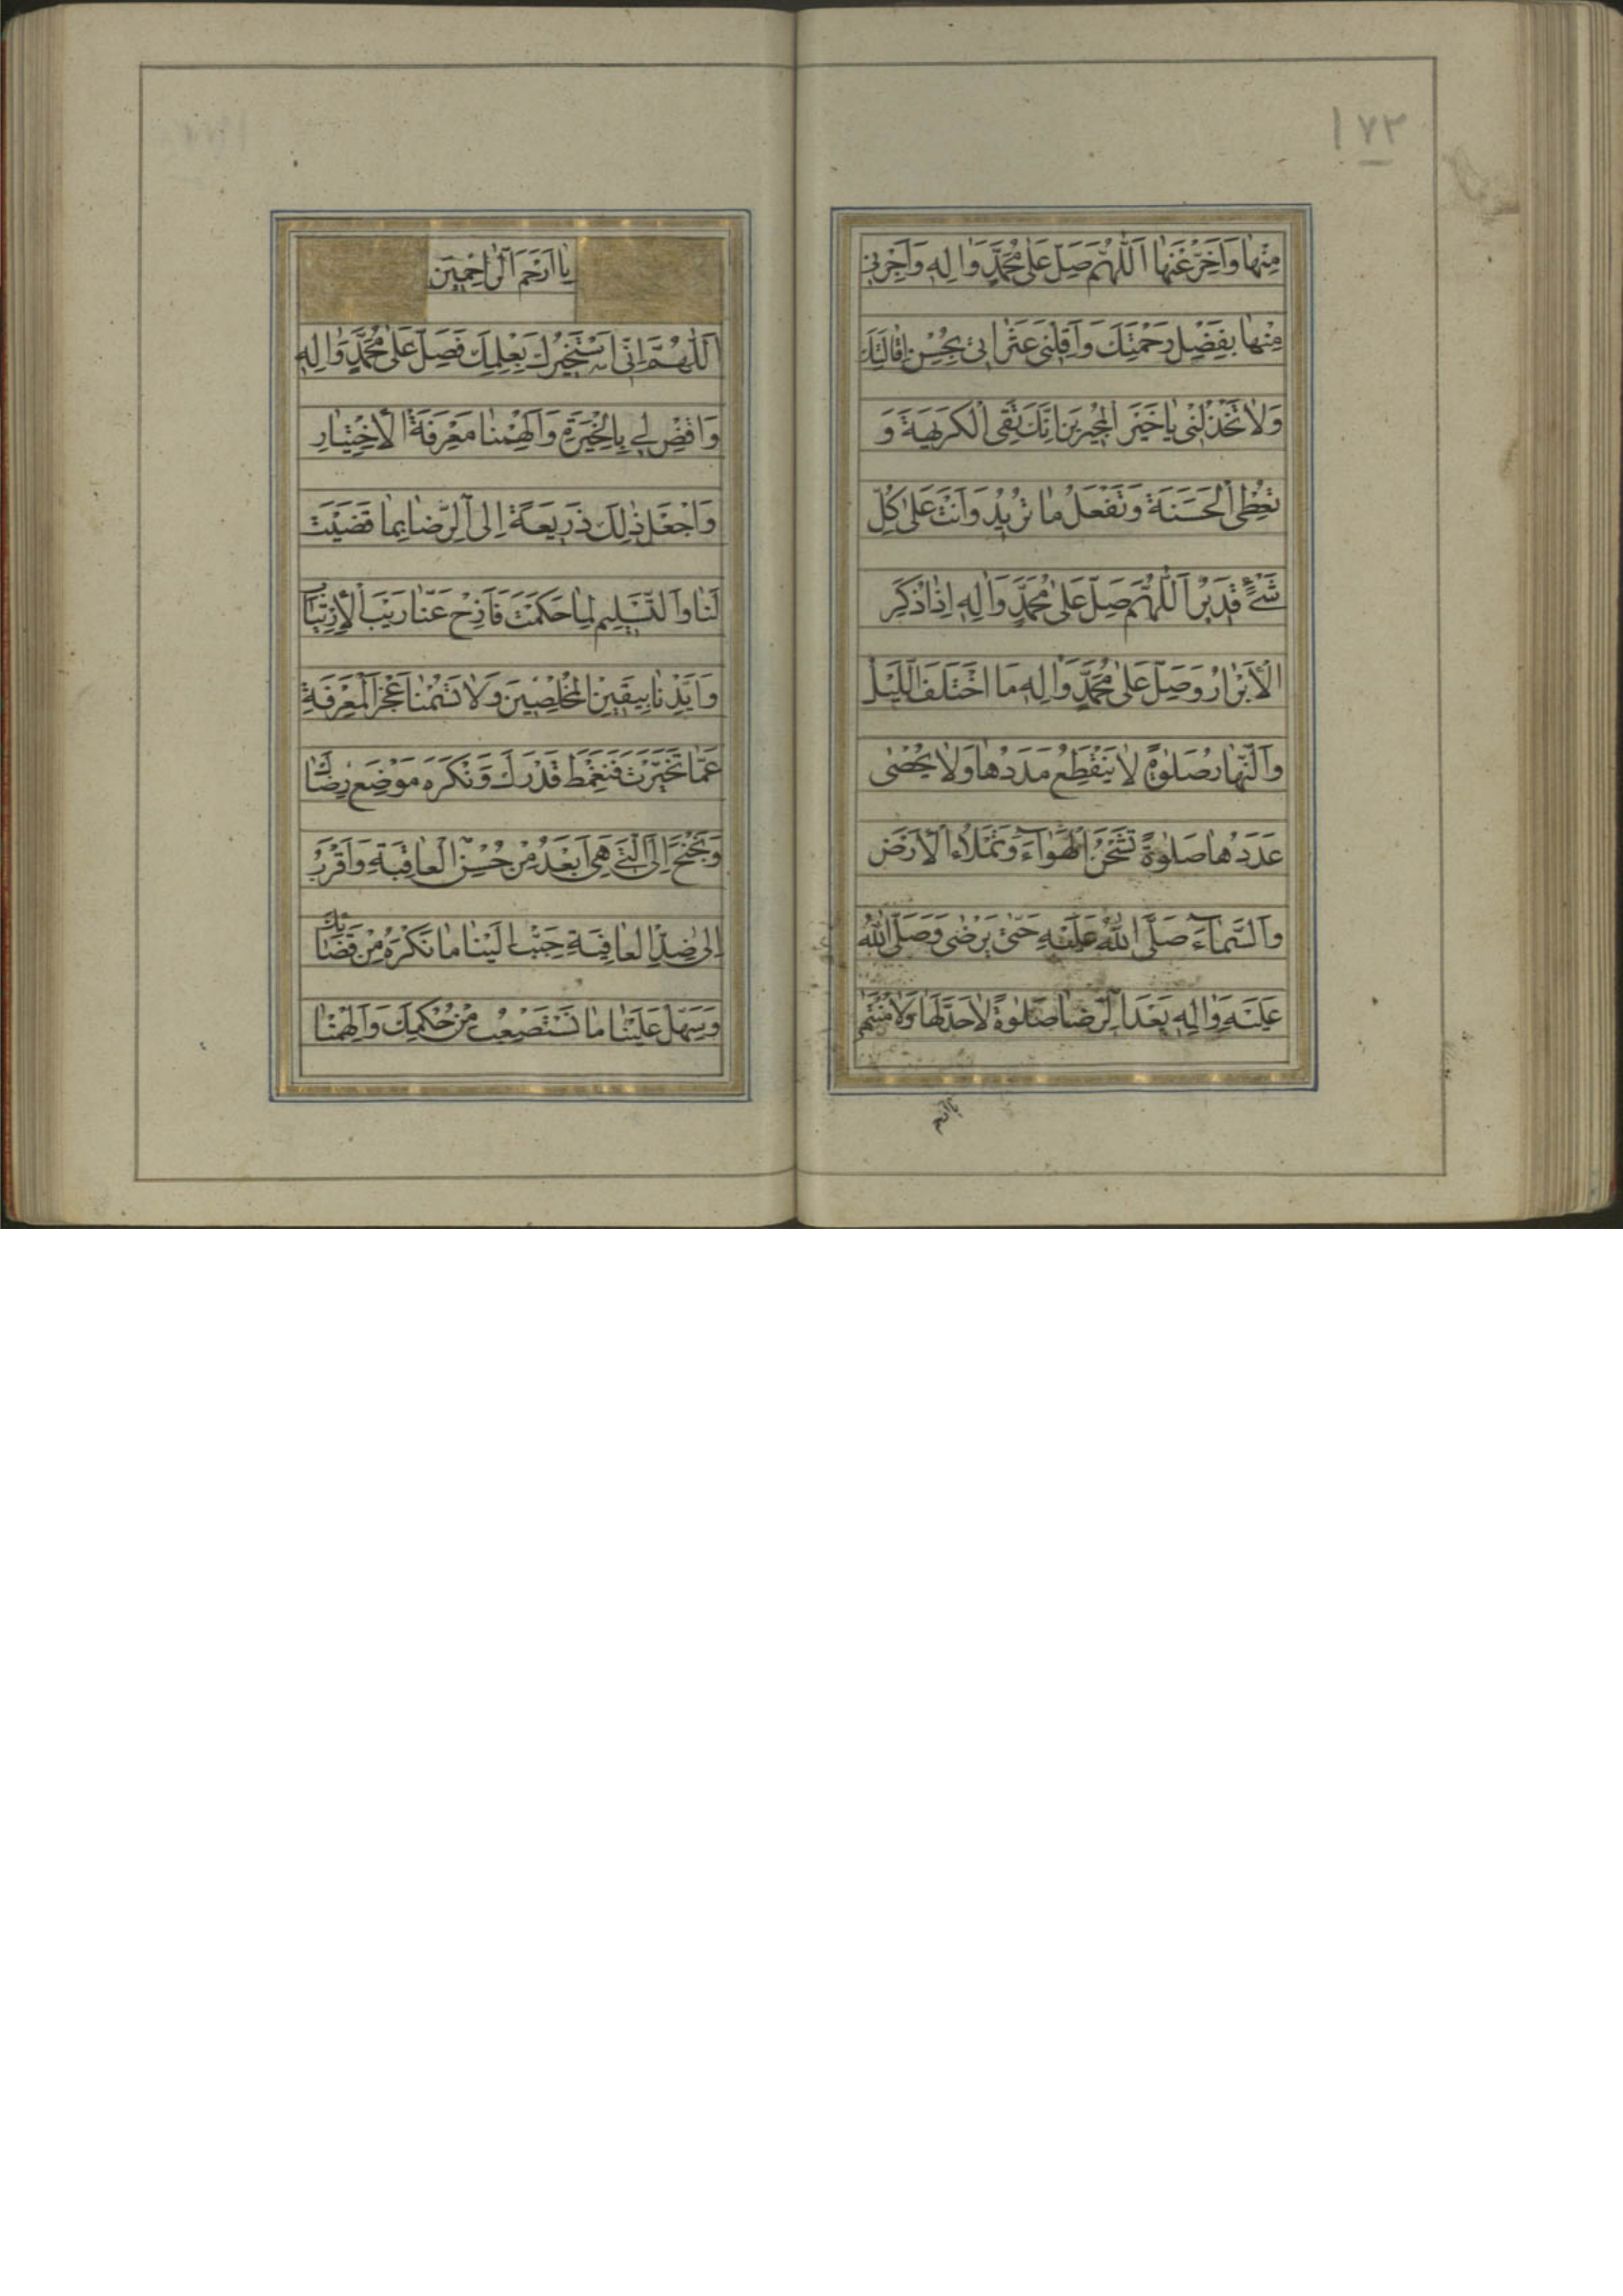 ١٧٣
مِنْها وَاَخِّرْ عَنْها اَللّٰهُمَّ صَلِّ عَلىٰ مُحَمَّدٍ وَاٰلِهِ وَاَجِرْنى
مِنْها بِفَضْلِ رَحْمَتِكَ وَاَقِلْنى عَثَراتى بِحُسْنِ اِقالَتِكَ
وَلاٰ تَخْذُلْنى يٰا خَيْرَ الْمُجيرينَ اِنَّكَ تَقِى الْكَريهَةَ وَ
تُعْطِى الْحَسَنَةَ وَتَفْعَلُ مٰا تُريدُ وَاَنْتَ عَلىٰ كُلِّ
شَىْءٍ قَديرٌ اَللّٰهُمَّ صَلِّ عَلىٰ مُحَمَّدٍ وَاٰلِهِ اِذٰا ذُكِرَ
الْاَبْرٰارُ وَصَلِّ عَلىٰ مُحَمَّدٍ وَاٰلِهِ مَا اخْتَلَفَ اللَّيْلُ
وَالنَّهٰارُ صَلٰوةً لاٰ يَنْقَطِعُ مَدَدُهٰا وَلاٰ يُحْصٰى
عَدَدُهٰا صَلٰوةً تَشْحَنُ الْهَوٰآءَ وَتَمْلَاُ الْاَرْضَ
وَالسَّمٰآءَ صَلَّى اللّٰهُ عَلَيْهِ حَتّىٰ يَرْضٰى وَصَلَّى اللّٰهُ
عَلَيْهِ وَاٰلِهِ بَعْدَ الرِّضٰا صَلٰوةً لاٰ حَدَّ لَهٰا وَلاٰ مُنْتَهىٰ
يا ارحم
يٰا اَرْحَمَ الرّٰاحِمينَ
اَللّٰهُمَّ اِنّى اَسْتَخيرُكَ بِعِلْمِكَ فَصَلِّ عَلىٰ مُحَمَّدٍ وَاٰلِهِ
وَاقْضِ لى بِالْخِيَرَةِ وَاَلْهِمْنٰا مَعْرِفَةَ الْاِخْتِيٰارِ
وَاجْعَلْ ذٰلِكَ ذَريعَةً اِلَى الرِّضٰا بِمٰا قَضَيْتَ
لَنٰا وَالتَّسْليمِ لِمٰا حَكَمْتَ فَاَزِحْ عَنّٰا رَيْبَ الْاِرْتِيٰابِ
وَاَيِّدْنٰا بِيَقينِ الْمُخْلِصينَ وَلاٰ تَسُمْنٰا عَجْزَ الْمَعْرِفَةِ
عَمّٰا تَخَيَّرْتَ فَنَغْمِطَ قَدْرَكَ وَنَكْرَهَ مَوْضِعَ رِضٰاكَ
وَنَجْنَحَ اِلَى الَّتى هِىَ اَبْعَدُ مِنْ حُسْنِ الْعٰاقِبَةِ وَاَقْرَبُ
اِلىٰ ضِدِّ الْعٰافِيَةِ حَبِّبْ اِلَيْنٰا مٰا نَكْرَهُ مِنْ قَضٰائِكَ
وَسَهِّلْ عَلَيْنٰا مٰا نَسْتَصْعِبُ مِنْ حُكْمِكَ وَاَلْهِمْنَا